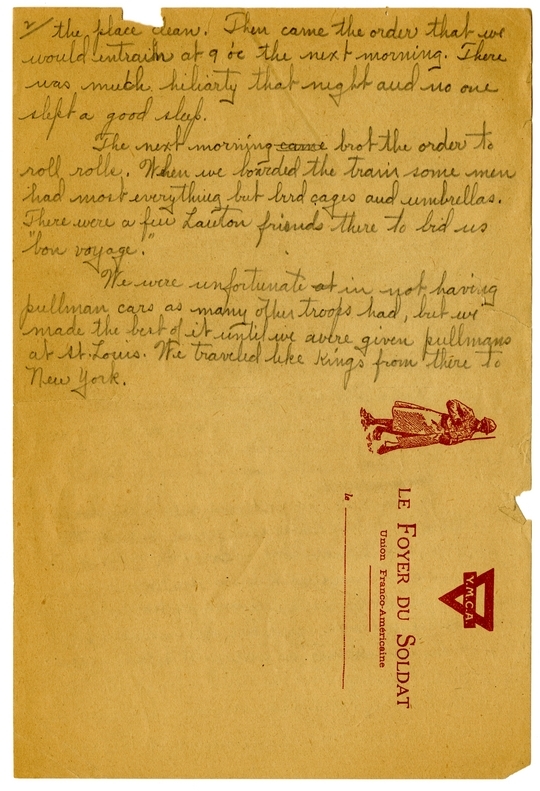 2/ the place clean. Then came the order that we
would entrain at 9 oc the next morning. There
was much hiliarty that night and no one
slept a good sleep.
The next morning came brot the order to
roll rolls. When we boarded the train some men
had most everything but brd cages and umbrellas.
There were a few Lawton friends there to bid us
"bon voyage."
We were unfortunate at in not having
pullman cars as many other troops had, but we
made the best of it until we were given pullmans
at St. Louis. We traveled like Kings from there to
New York.
Y.M.C.A.
LE FOYER DU SOLDAT
Union Franco-Américaine
le